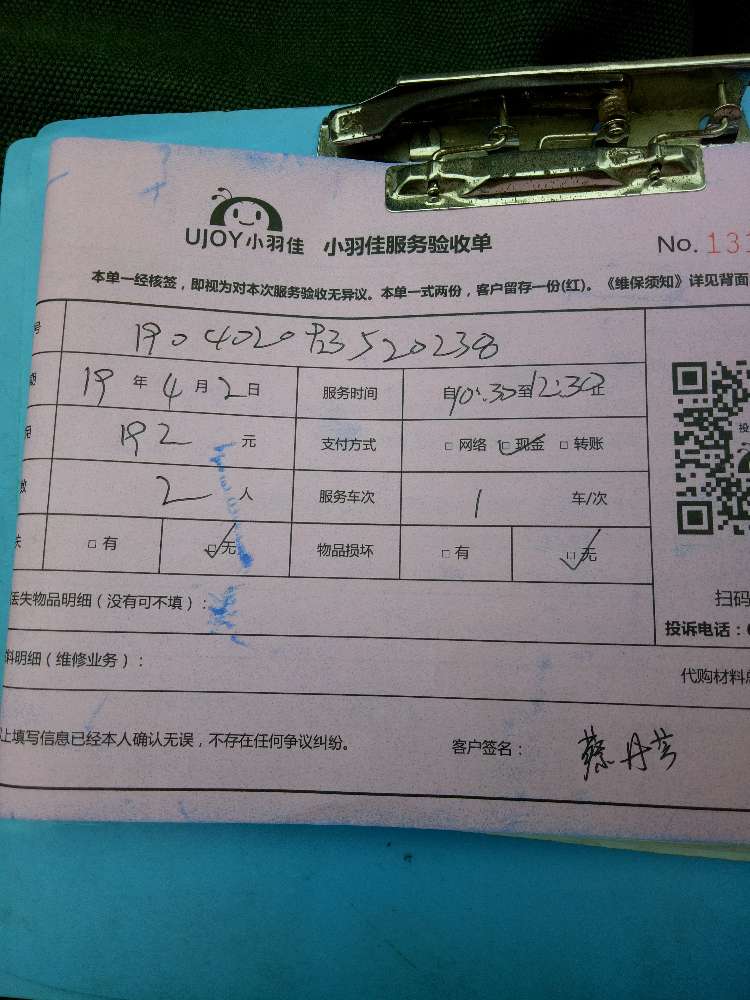 UJOY小羽佳 小羽佳服务验收单 No. 131
本单一经核签，即视为对本次服务验收无异议。本单一式两份，客户留存一份(红)。《维保须知》详见背面
号
19年4月2日 服务时间 自10:30至12:30止
192元 支付方式 □网络 □现金 □转账
数 2人 服务车次 1 车/次
□有 □无 物品损坏 □有 □无
丢失物品明细（没有可不填）： 扫码
投诉电话：
料明细（维修业务）： 代购材料
上填写信息已经本人确认无误，不存在任何争议纠纷。 客户签名： 蔡丹